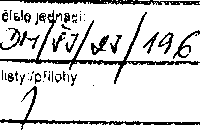 číslo jednací:
DM/ŠJ/27/196
listy/přílohy
1